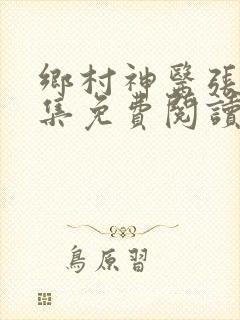 鄉村神醫張
集免費閱讀
鳥原習